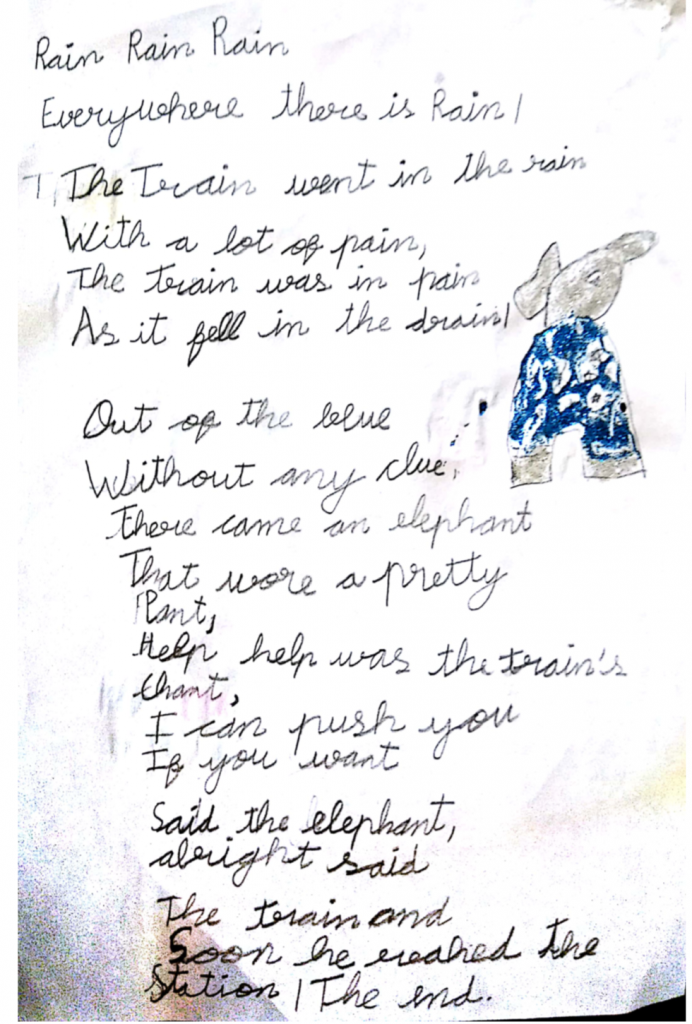 Rain Rain Rain
Everywhere there is Rain|
The Train went in the rain
With a lot of pain,
The train was in pain
As it fell in the drain|
Out of the blue
Without any clue,
There came an elephant
That wore a pretty
Pant,
Help help was the train's
Chant,
I can push you
If you want
Said the elephant,
alright said
The train and
Soon he reached the
Station | The end.